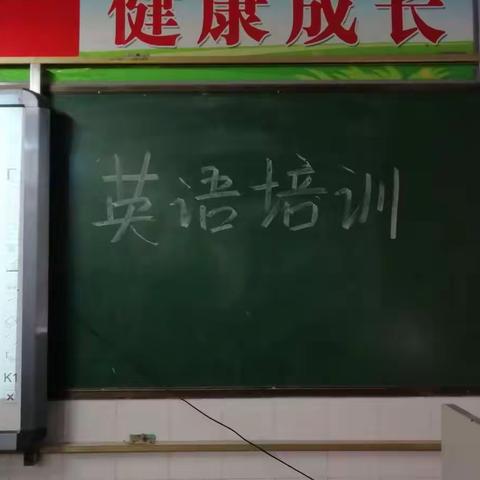 健康成长
英语培训
K1